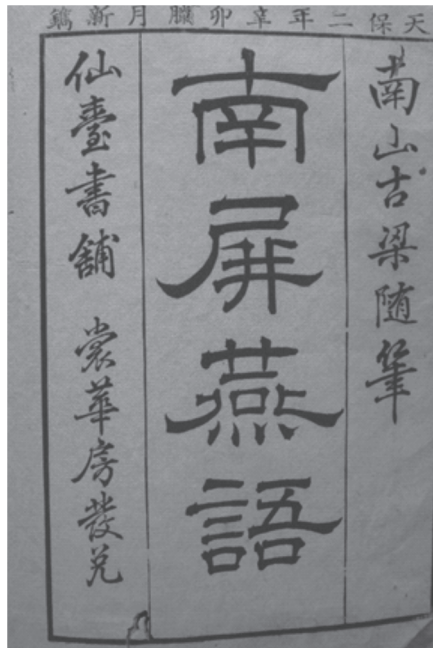 天保二年辛卯臘月新鐫
南山古梁随筆
南屏燕語
仙臺書舖 裳華房發兌